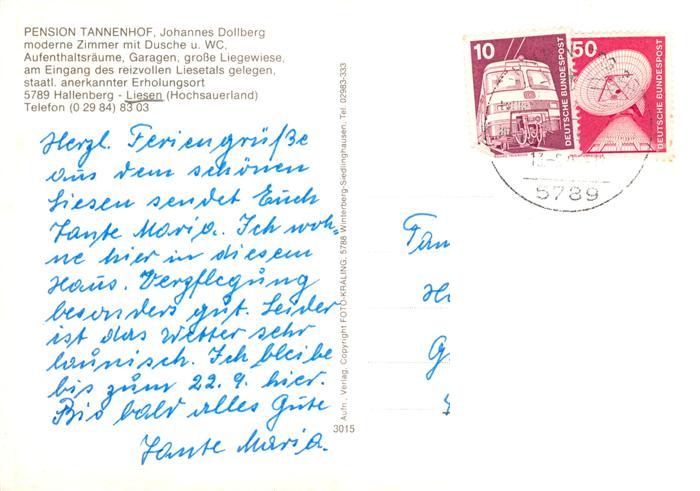 PENSION TANNENHOF, Johannes Dollberg
moderne Zimmer mit Dusche u. WC,
Aufenthaltsräume, Garagen, große Liegewiese,
am Eingang des reizvollen Liesetals gelegen,
staatl. anerkannter Erholungsort
5789 Hallenberg - Liesen (Hochsauerland)
Telefon (0 29 84) 83 03
Herzl. Feriengrüße
aus dem schönen
Liesen sendet Euch
Tante Maria. Ich woh-
ne hier in diesem
Haus. Verpflegung
besonders gut. Leider
ist das Wetter sehr
launisch. Ich bleibe
bis zum 22. 9. hier.
Bis bald alles Gute
Tante Maria.
Aufn., Verlag, Copyright FOTO-KRÄLING, 5788 Winterberg-Siedlinghausen, Tel. 02983-333
3015
10
DEUTSCHE BUNDESPOST
50
DEUTSCHE BUNDESPOST
5789
Fam